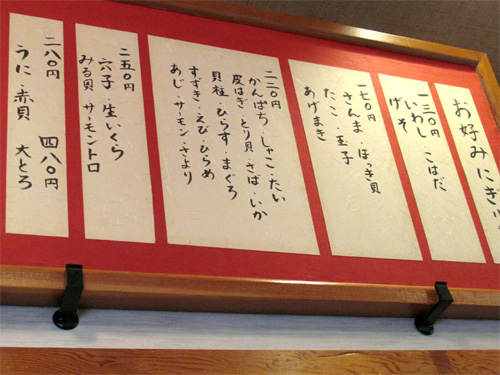 お好みにぎり
一三〇円
いわし こはだ
げそ
一七〇円
さんま・ほっき貝
たこ・玉子
あげまき
二二〇円
かんぱち・しゃこ・たい
皮はぎ・とり貝・さば・いか
貝柱・ひらす・まぐろ
すずき・えび・ひらめ
あじ・サーモン・さより
二五〇円
穴子・生いくら
みる貝 サーモントロ
二八〇円
うに・赤貝
四八〇円
大とろ